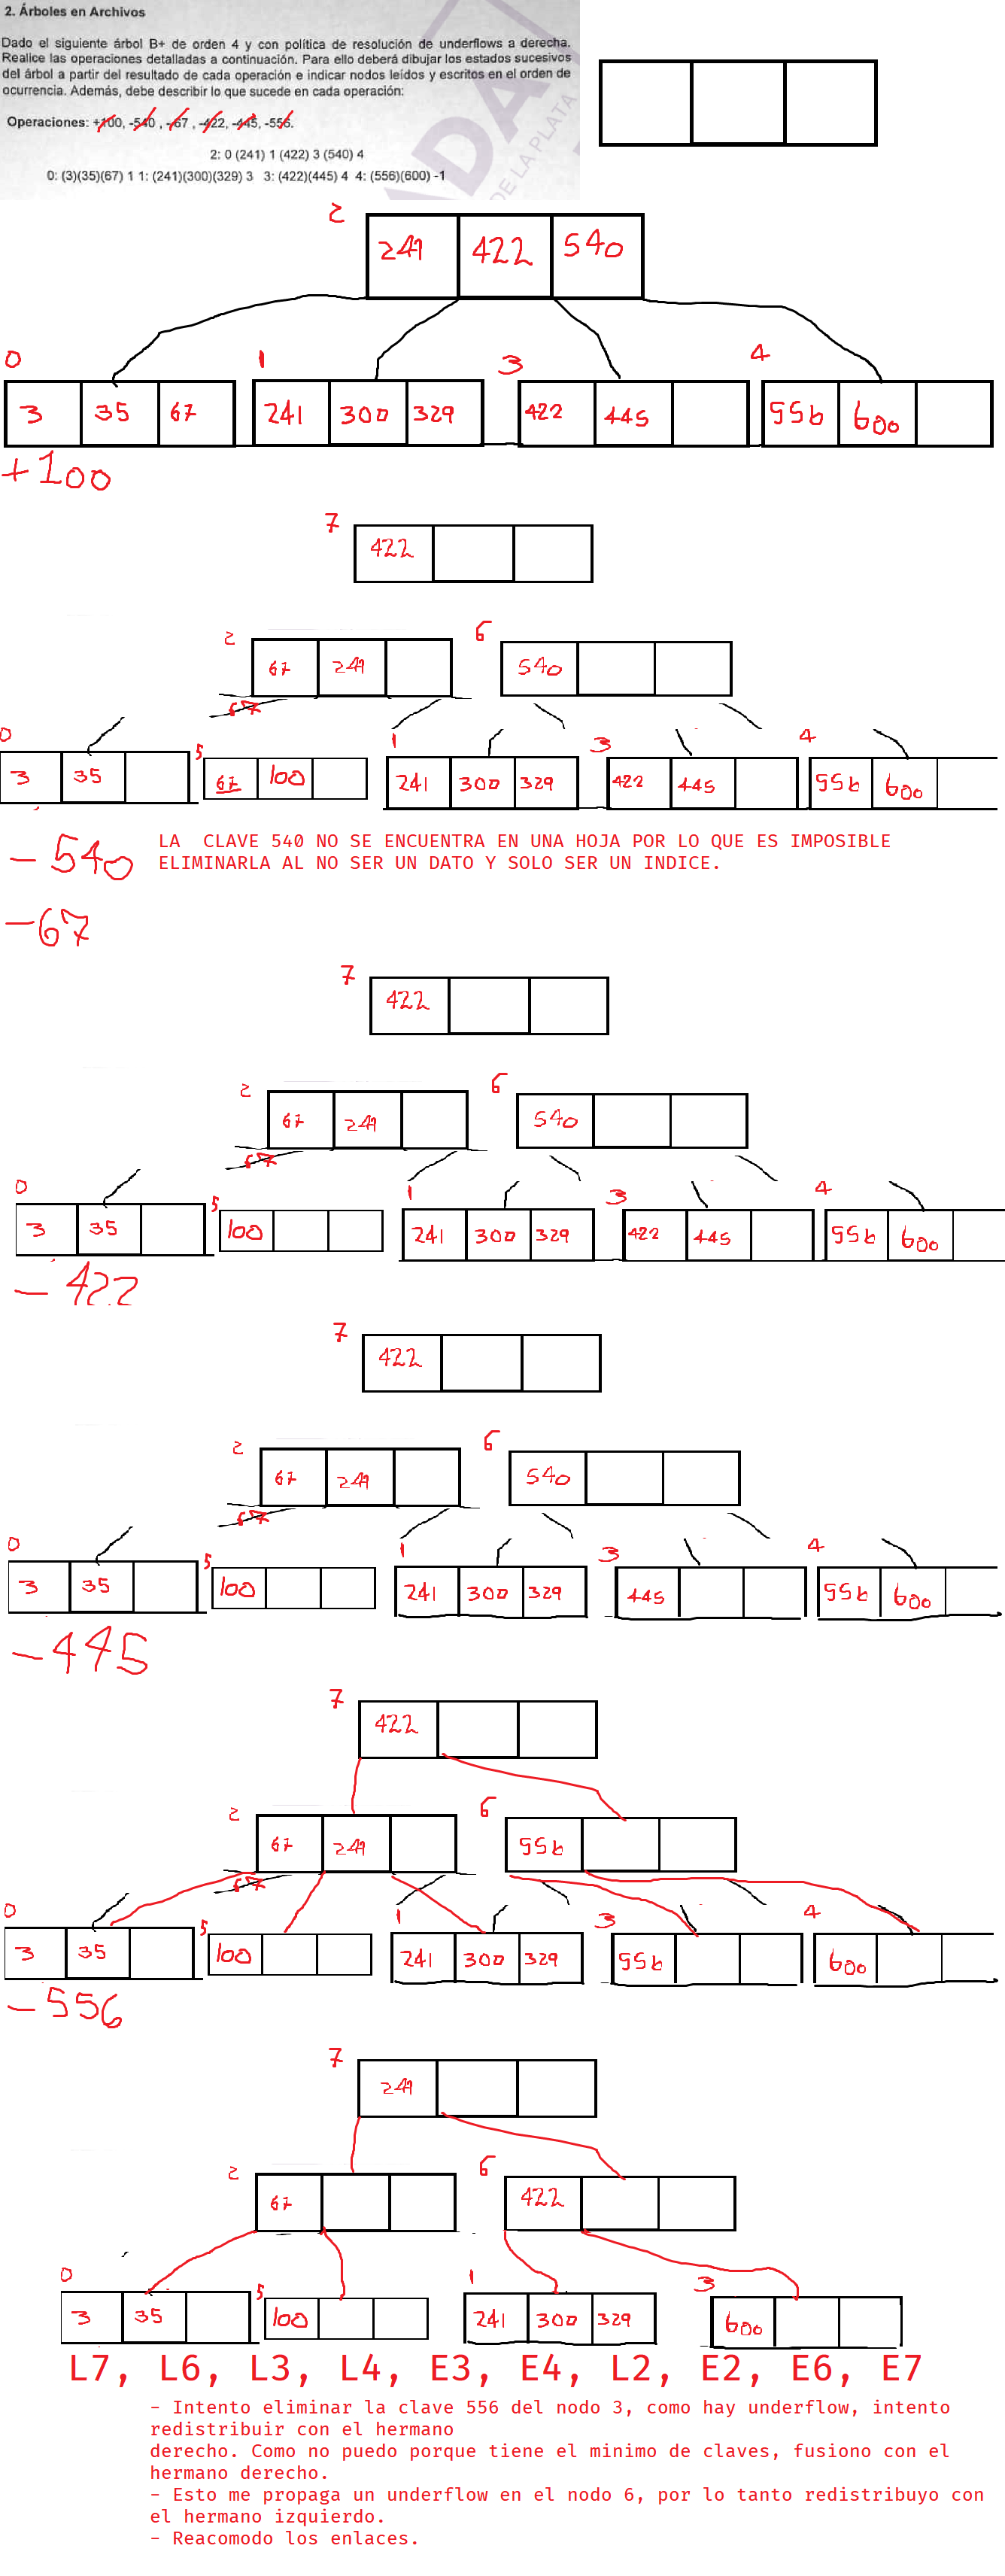 2. Árboles en Archivos
Dado el siguiente árbol B+ de orden 4 y con política de resolución de underflows a derecha.
Realice las operaciones detalladas a continuación. Para ello deberá dibujar los estados sucesivos
del árbol a partir del resultado de cada operación e indicar nodos leídos y escritos en el orden de
ocurrencia. Además, debe describir lo que sucede en cada operación:
Operaciones: +100, -540 , -67 , -422, -445, -556.
2: 0 (241) 1 (422) 3 (540) 4
0: (3)(35)(67) 1 1: (241)(300)(329) 3 3: (422)(445) 4 4: (556)(600) -1
DE LA PLATA
2
241 422 540
0 1 3 4
3 35 67 241 300 329 422 445 556 600
+100
7
422
2 6
67 241 540
67
0 5 1 3 4
3 35 67 100 241 300 329 422 445 556 600
- 540 LA CLAVE 540 NO SE ENCUENTRA EN UNA HOJA POR LO QUE ES IMPOSIBLE
ELIMINARLA AL NO SER UN DATO Y SOLO SER UN INDICE.
-67
7
422
2 6
67 241 540
67
0 5 1 3 4
3 35 100 241 300 329 422 445 556 600
- 422
7
422
2 6
67 241 540
67
0 5 1 3 4
3 35 100 241 300 329 445 556 600
-445
7
422
2 6
67 241 556
67
0 5 1 3 4
3 35 100 241 300 329 556 600
-556
7
241
2 6
67 422
0 5 1 3
3 35 100 241 300 329 600
L7, L6, L3, L4, E3, E4, L2, E2, E6, E7
- Intento eliminar la clave 556 del nodo 3, como hay underflow, intento
redistribuir con el hermano
derecho. Como no puedo porque tiene el minimo de claves, fusiono con el
hermano derecho.
- Esto me propaga un underflow en el nodo 6, por lo tanto redistribuyo con
el hermano izquierdo.
- Reacomodo los enlaces.